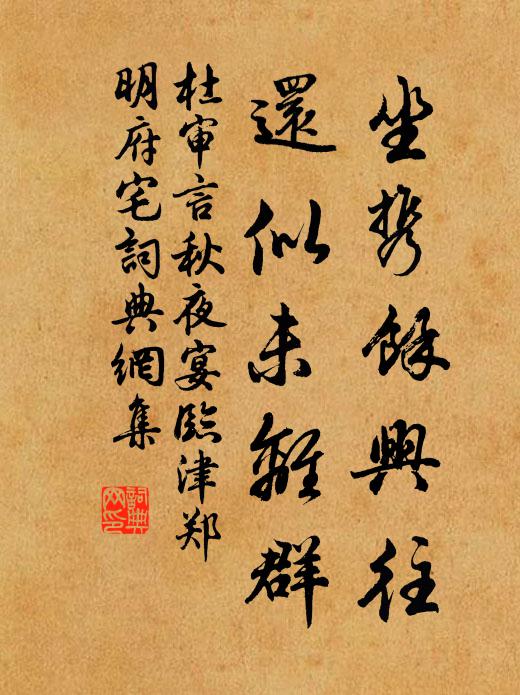 坐携餘興往
還似未離群
杜审言秋夜宴臨津郑
明府宅詞典網集
詞典网印